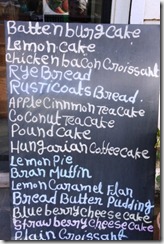 Battenburg Cake
Lemon Cake
Chicken bacon Croissant
Rye Bread
Rustic oats Bread
Apple Cinnmon Tea Cake
Coconut Tea Cake
Pound Cake
Hungarian Coffee Cake
Lemon Pie
Bran Muffin
Lemon Caramel Flan
Bread Butter Pudding
Blueberry cheese cake
Strawberry cheese cake
Plain Croissant